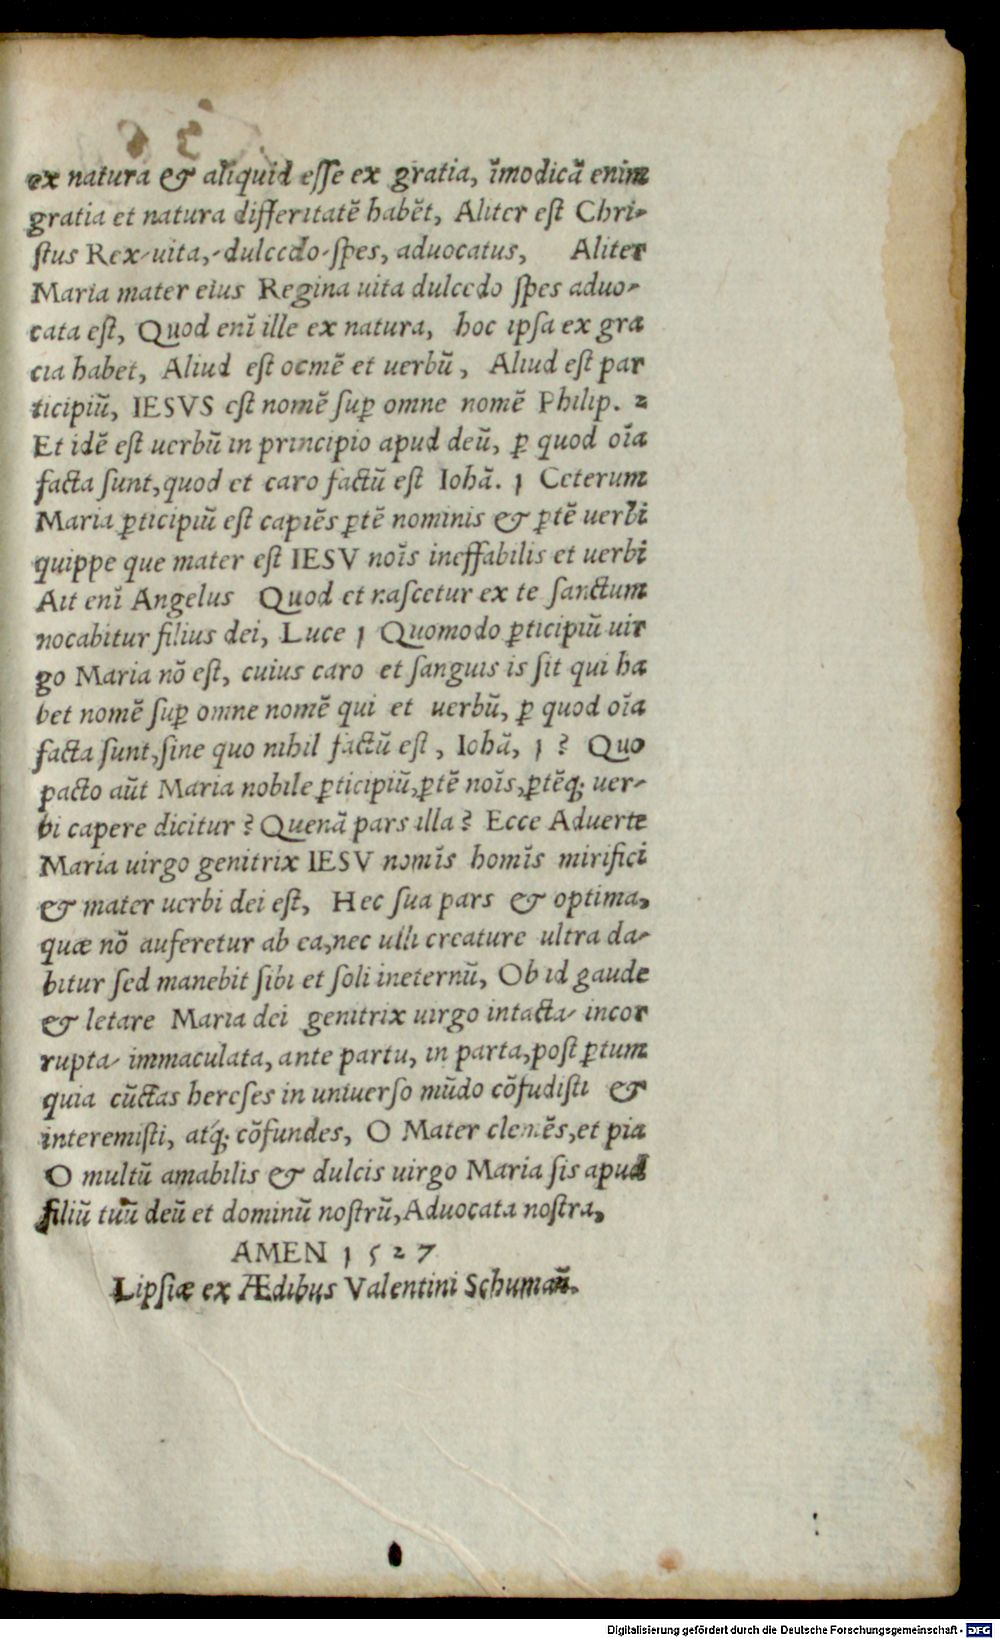 ex natura & aliquid esse ex gratia, ĩmodicã enim
gratia et natura differitatẽ habẽt, Aliter est Chri-
stus Rex-uita,-dulcedo-spes, aduocatus, Aliter
Maria mater eius Regina uita dulcedo spes aduo-
cata est, Quod enĩ ille ex natura, hoc ipsa ex gra
cia habet, Aliud est ocmẽ et uerbũ, Aliud est par
ticipiũ, IESVS est nomẽ suꝑ omne nomẽ Philip. 2
Et idẽ est uerbũ in principio apud deũ, ꝑ quod oĩa
facta sunt, quod et caro factũ est Iohã. 1 Ceterum
Maria ꝑticipiũ est capiẽs ꝑtẽ nominis & ꝑtẽ uerbi
quippe que mater est IESV noĩs ineffabilis et uerbi
Ait enĩ Angelus Quod et nascetur ex te sanctum
nocabitur filius dei, Luce 1 Quomodo ꝑticipiũ uir
go Maria nõ est, cuius caro et sanguis is sit qui ha
bet nomẽ suꝑ omne nomẽ qui et uerbũ, ꝑ quod oĩa
facta sunt, sine quo nihil factũ est, Iohã, 1 ? Quo
pacto aũt Maria nobile ꝑticipiũ, ꝑtẽ noĩs, ꝑtẽq; uer-
bi capere dicitur ? Quenã pars illa ? Ecce Aduerte
Maria uirgo genitrix IESV nomĩs homĩs mirifici
& mater uerbi dei est, Hec sua pars & optima,
quæ nõ auferetur ab ea, nec ulli creature ultra da-
bitur sed manebit sibi et soli ineternũ, Ob id gaude
& letare Maria dei genitrix uirgo intacta- incor
rupta- immaculata, ante partu, in parta, post ꝑtum
quia cũctas hereses in uniuerso mũdo cõfudisti &
interemisti, atq; cõfundes, O Mater clemẽs, et pia
O multũ amabilis & dulcis uirgo Maria sis apud
filiũ tuũ deũ et dominũ nostrũ, Aduocata nostra,
AMEN 1527
Lipsiæ ex Ædibus Valentini Schumañ.
Digitalisierung gefördert durch die Deutsche Forschungsgemeinschaft - DFG